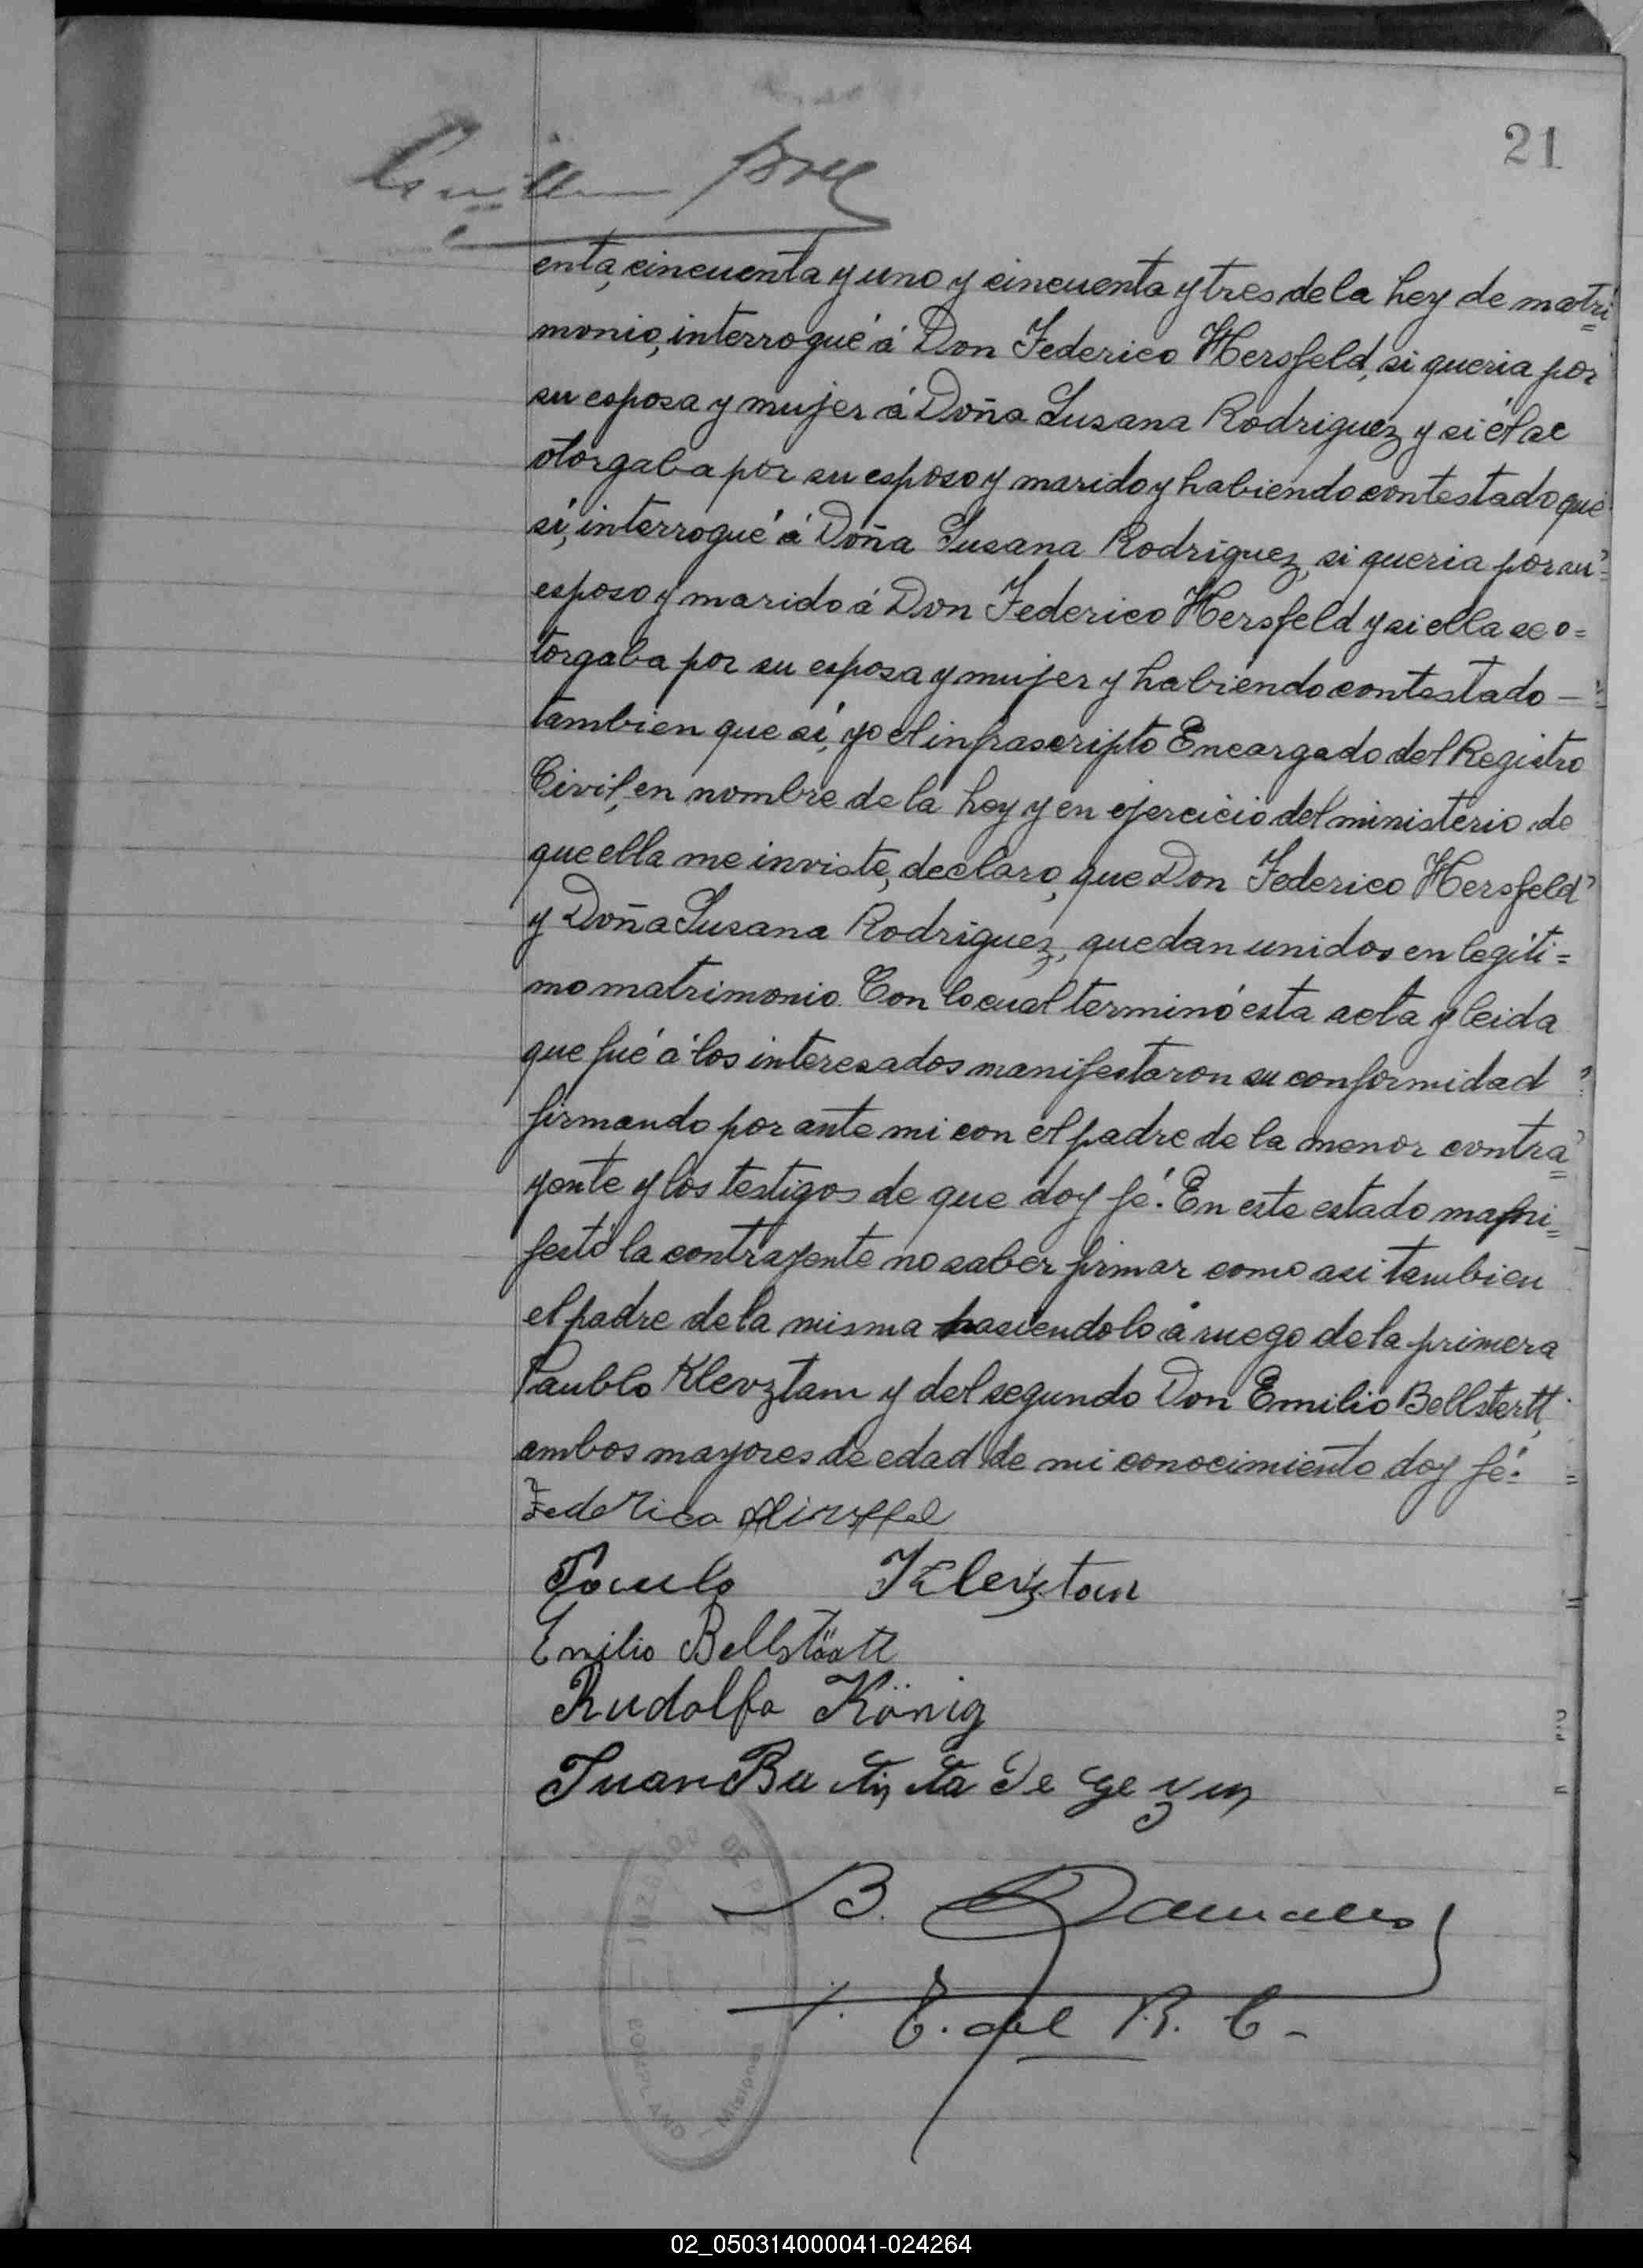 21
enta, cincuenta y uno y cincuenta y tres de la Ley de matri=
monio, interrogué á Don Federico Hersfeld, si queria por
su esposa y mujer á Doña Susana Rodriguez y si él se
otorgaba por su esposo y marido y habiendo contestado que
sí, interrogué á Doña Susana Rodriguez, si queria por su
esposo y marido á Don Federico Hersfeld y si ella se o=
torgaba por su esposa y mujer y habiendo contestado —
tambien que sí, yo el infrascripto Encargado del Registro
Civil, en nombre de la Ley y en ejercicio del ministerio de
que ella me inviste, declaro, que Don Federico Hersfeld
y Doña Susana Rodriguez, quedan unidos en legiti=
mo matrimonio. Con lo cual terminó esta acta y leida
que fué á los interesados manifestaron su conformidad
firmando por ante mi con el padre de la menor contra=
yente y los testigos de que doy fé. En este estado mani=
festó la contrayente no saber firmar como asi tambien
el padre de la misma haciendolo á ruego de la primera
Paublo Klevztam y del segundo Don Emilio Bellstertt,
ambos mayores de edad de mi conocimiento doy fé.
Federico Hirsffel
Paulo Klevztam
Emilio Bellstäatt
Rudolfo König
Juan Bautista de
B.
E. del R. C.
Misiones
02_050314000041-024264